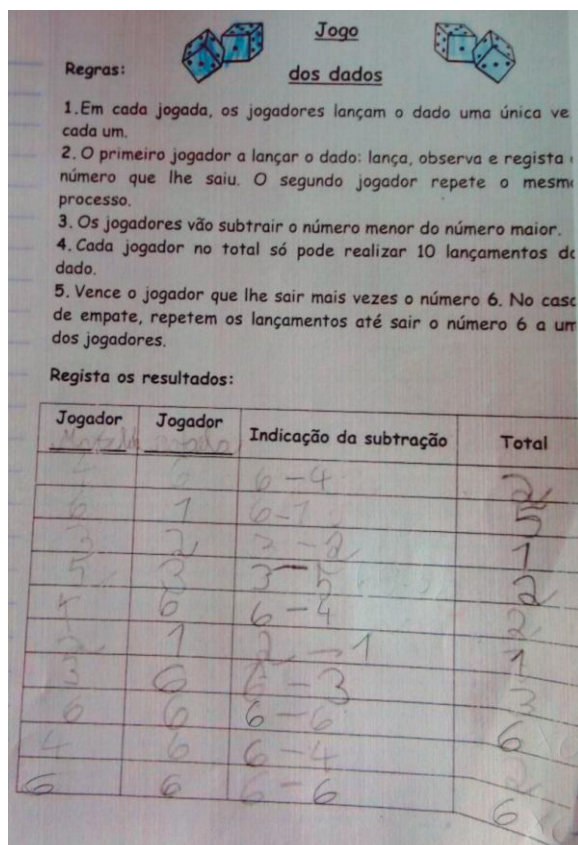 Jogo
Regras:
dos dados
1.Em cada jogada, os jogadores lançam o dado uma única ve
cada um.
2. O primeiro jogador a lançar o dado: lança, observa e regista
número que lhe saiu. O segundo jogador repete o mesmo
processo.
3. Os jogadores vão subtrair o número menor do número maior.
4. Cada jogador no total só pode realizar 10 lançamentos do
dado.
5. Vence o jogador que lhe sair mais vezes o número 6. No caso
de empate, repetem os lançamentos até sair o número 6 a um
dos jogadores.
Regista os resultados:
Jogador Jogador Indicação da subtração Total
4 6 6-4 2
6 1 6-1 5
3 2 3-2 1
5 3 3-5 2
4 6 6-4 2
2 1 2-1 1
3 6 6-3 3
6 6 6-6 6
4 6 6-4 2
6 6 6-6 6